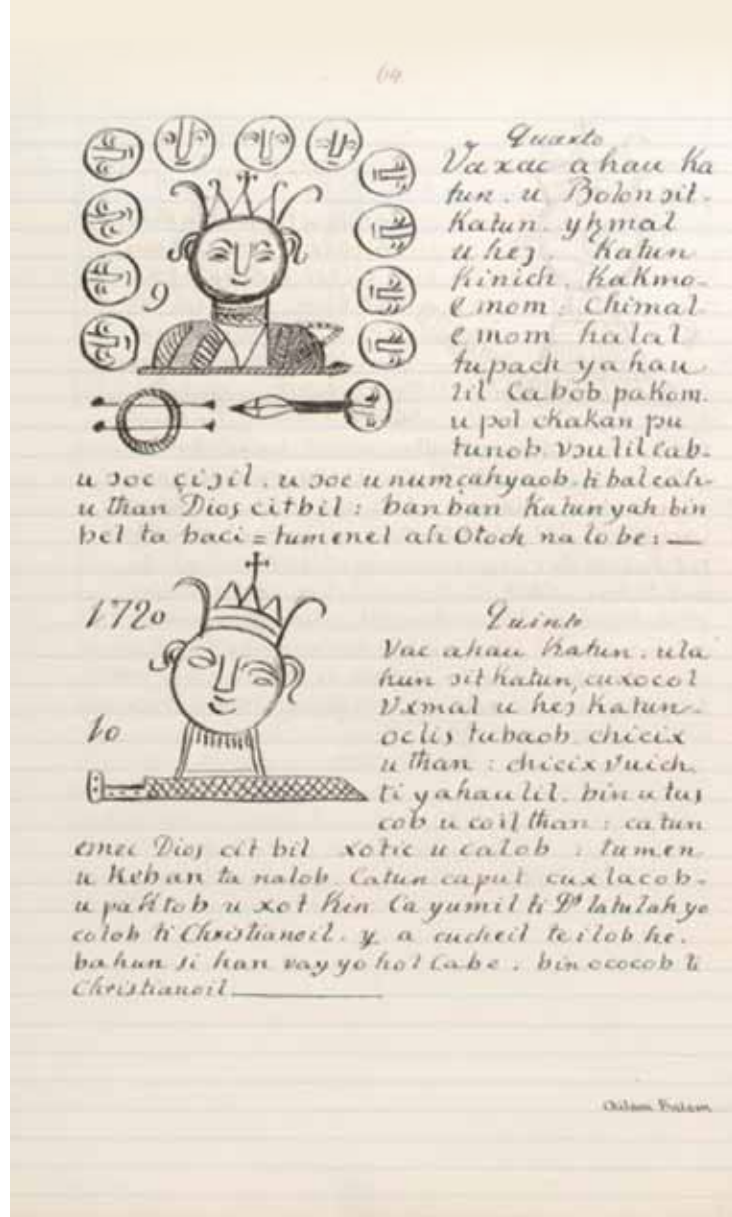 64
Quarto
Vaxac ahau Ka
tun. u Bolon ɔit.
Katun. ytzmal
u heɔ. Katun
Kinich. Kakmo.
emom: Chimal
emom halal
tupach yahau
lil Cabob pakom.
u pol chakan pu
tunob. vɔulil cab.
9
u ɔoc çiɔil. u ɔoc u numçahyaob. ti balcah.
u than Dios citbil: banban Katunyah bin
bel ta baci = tumenel ah Otoch nalobe: —
1720
Quinto
10
Vac ahau Katun. ula
hun ɔit Katun, cuxocol
Vxmal u heɔ Katun.
oclis tubaob. chicix
u than: chicix vuich.
ti yahaulil. bin u tus
cob u coil than: catun
emec Dios cit bil xotic u calob: tumen
u Keban ta nalob. Catun caput cuxlacob.
u paKtob u xot Kin Ca yumil ti Ds latulah yo
colob ti Christianoil. y a cucheil teilob he.
bahun si han vay yo hol Cabe. bin ococob ti
Christianoil
Chilam Balam